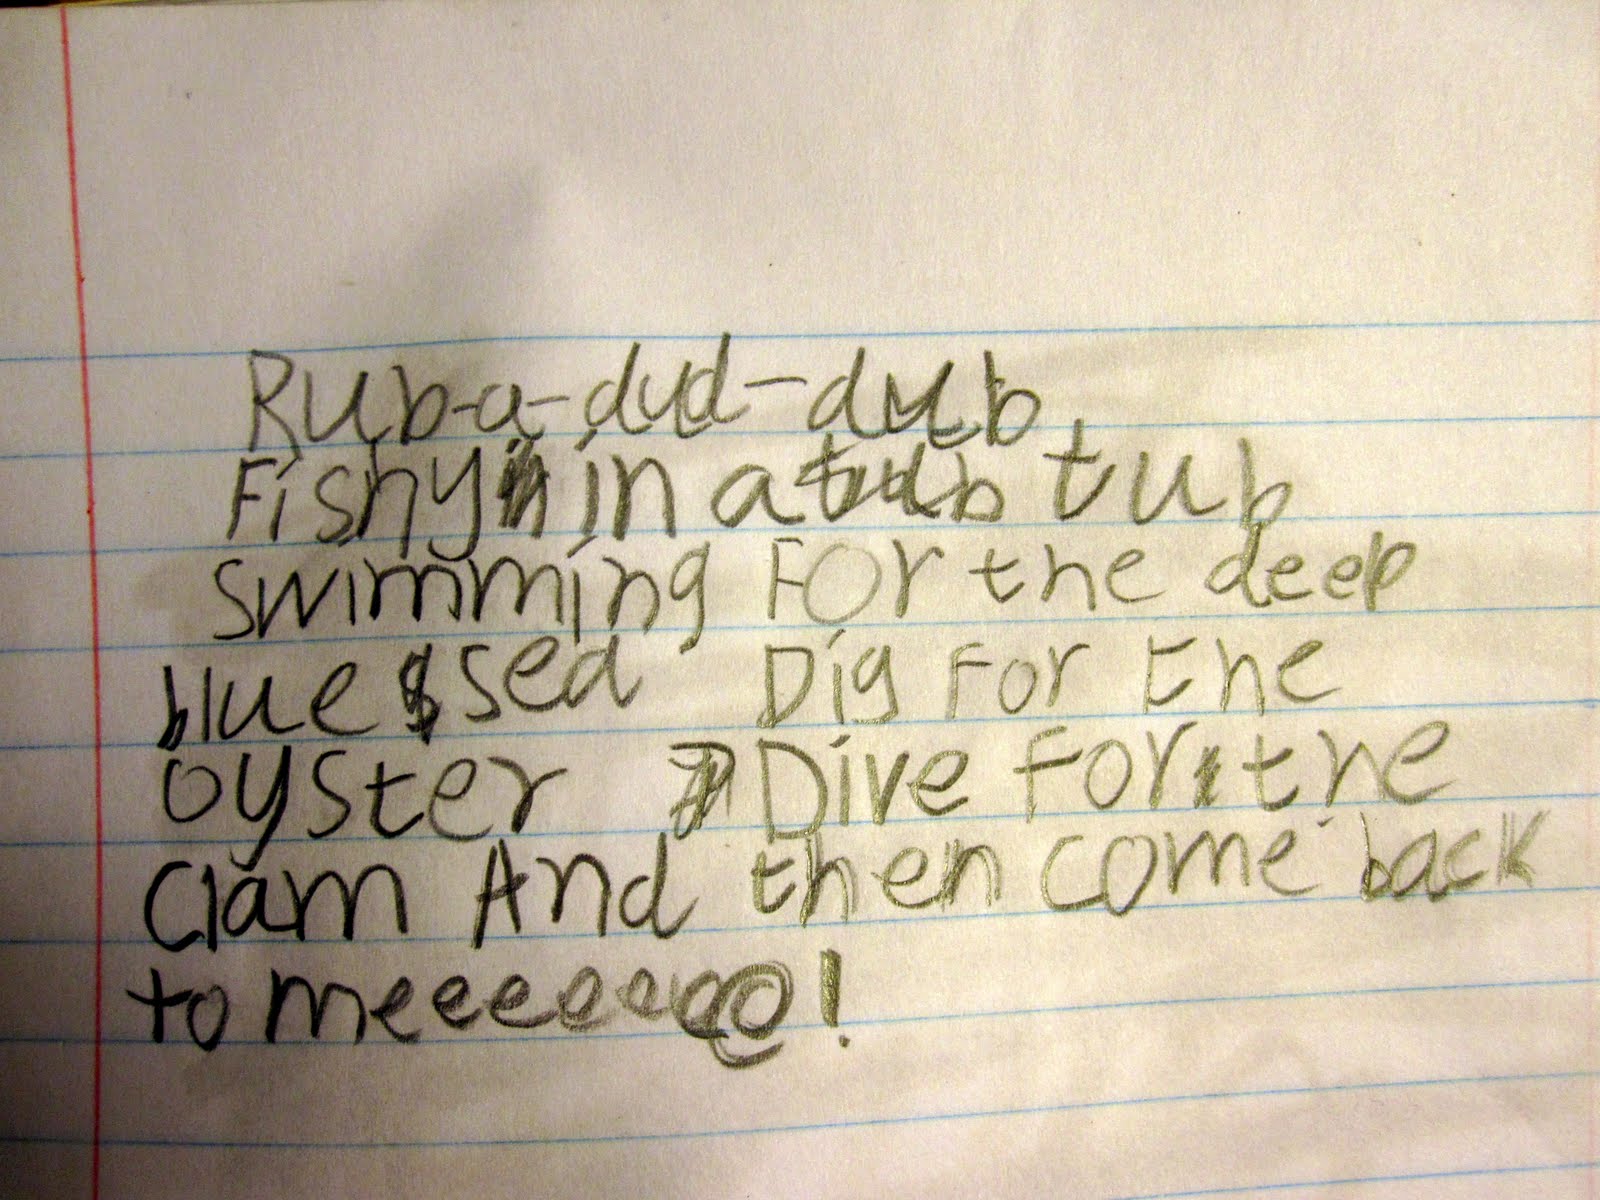 Rub-a-dud-dub
Fishy in a tub
Swimming For the deep
blue sea Dig For the
Oyster Dive For the
Clam And then come back
to meeeeeeee!